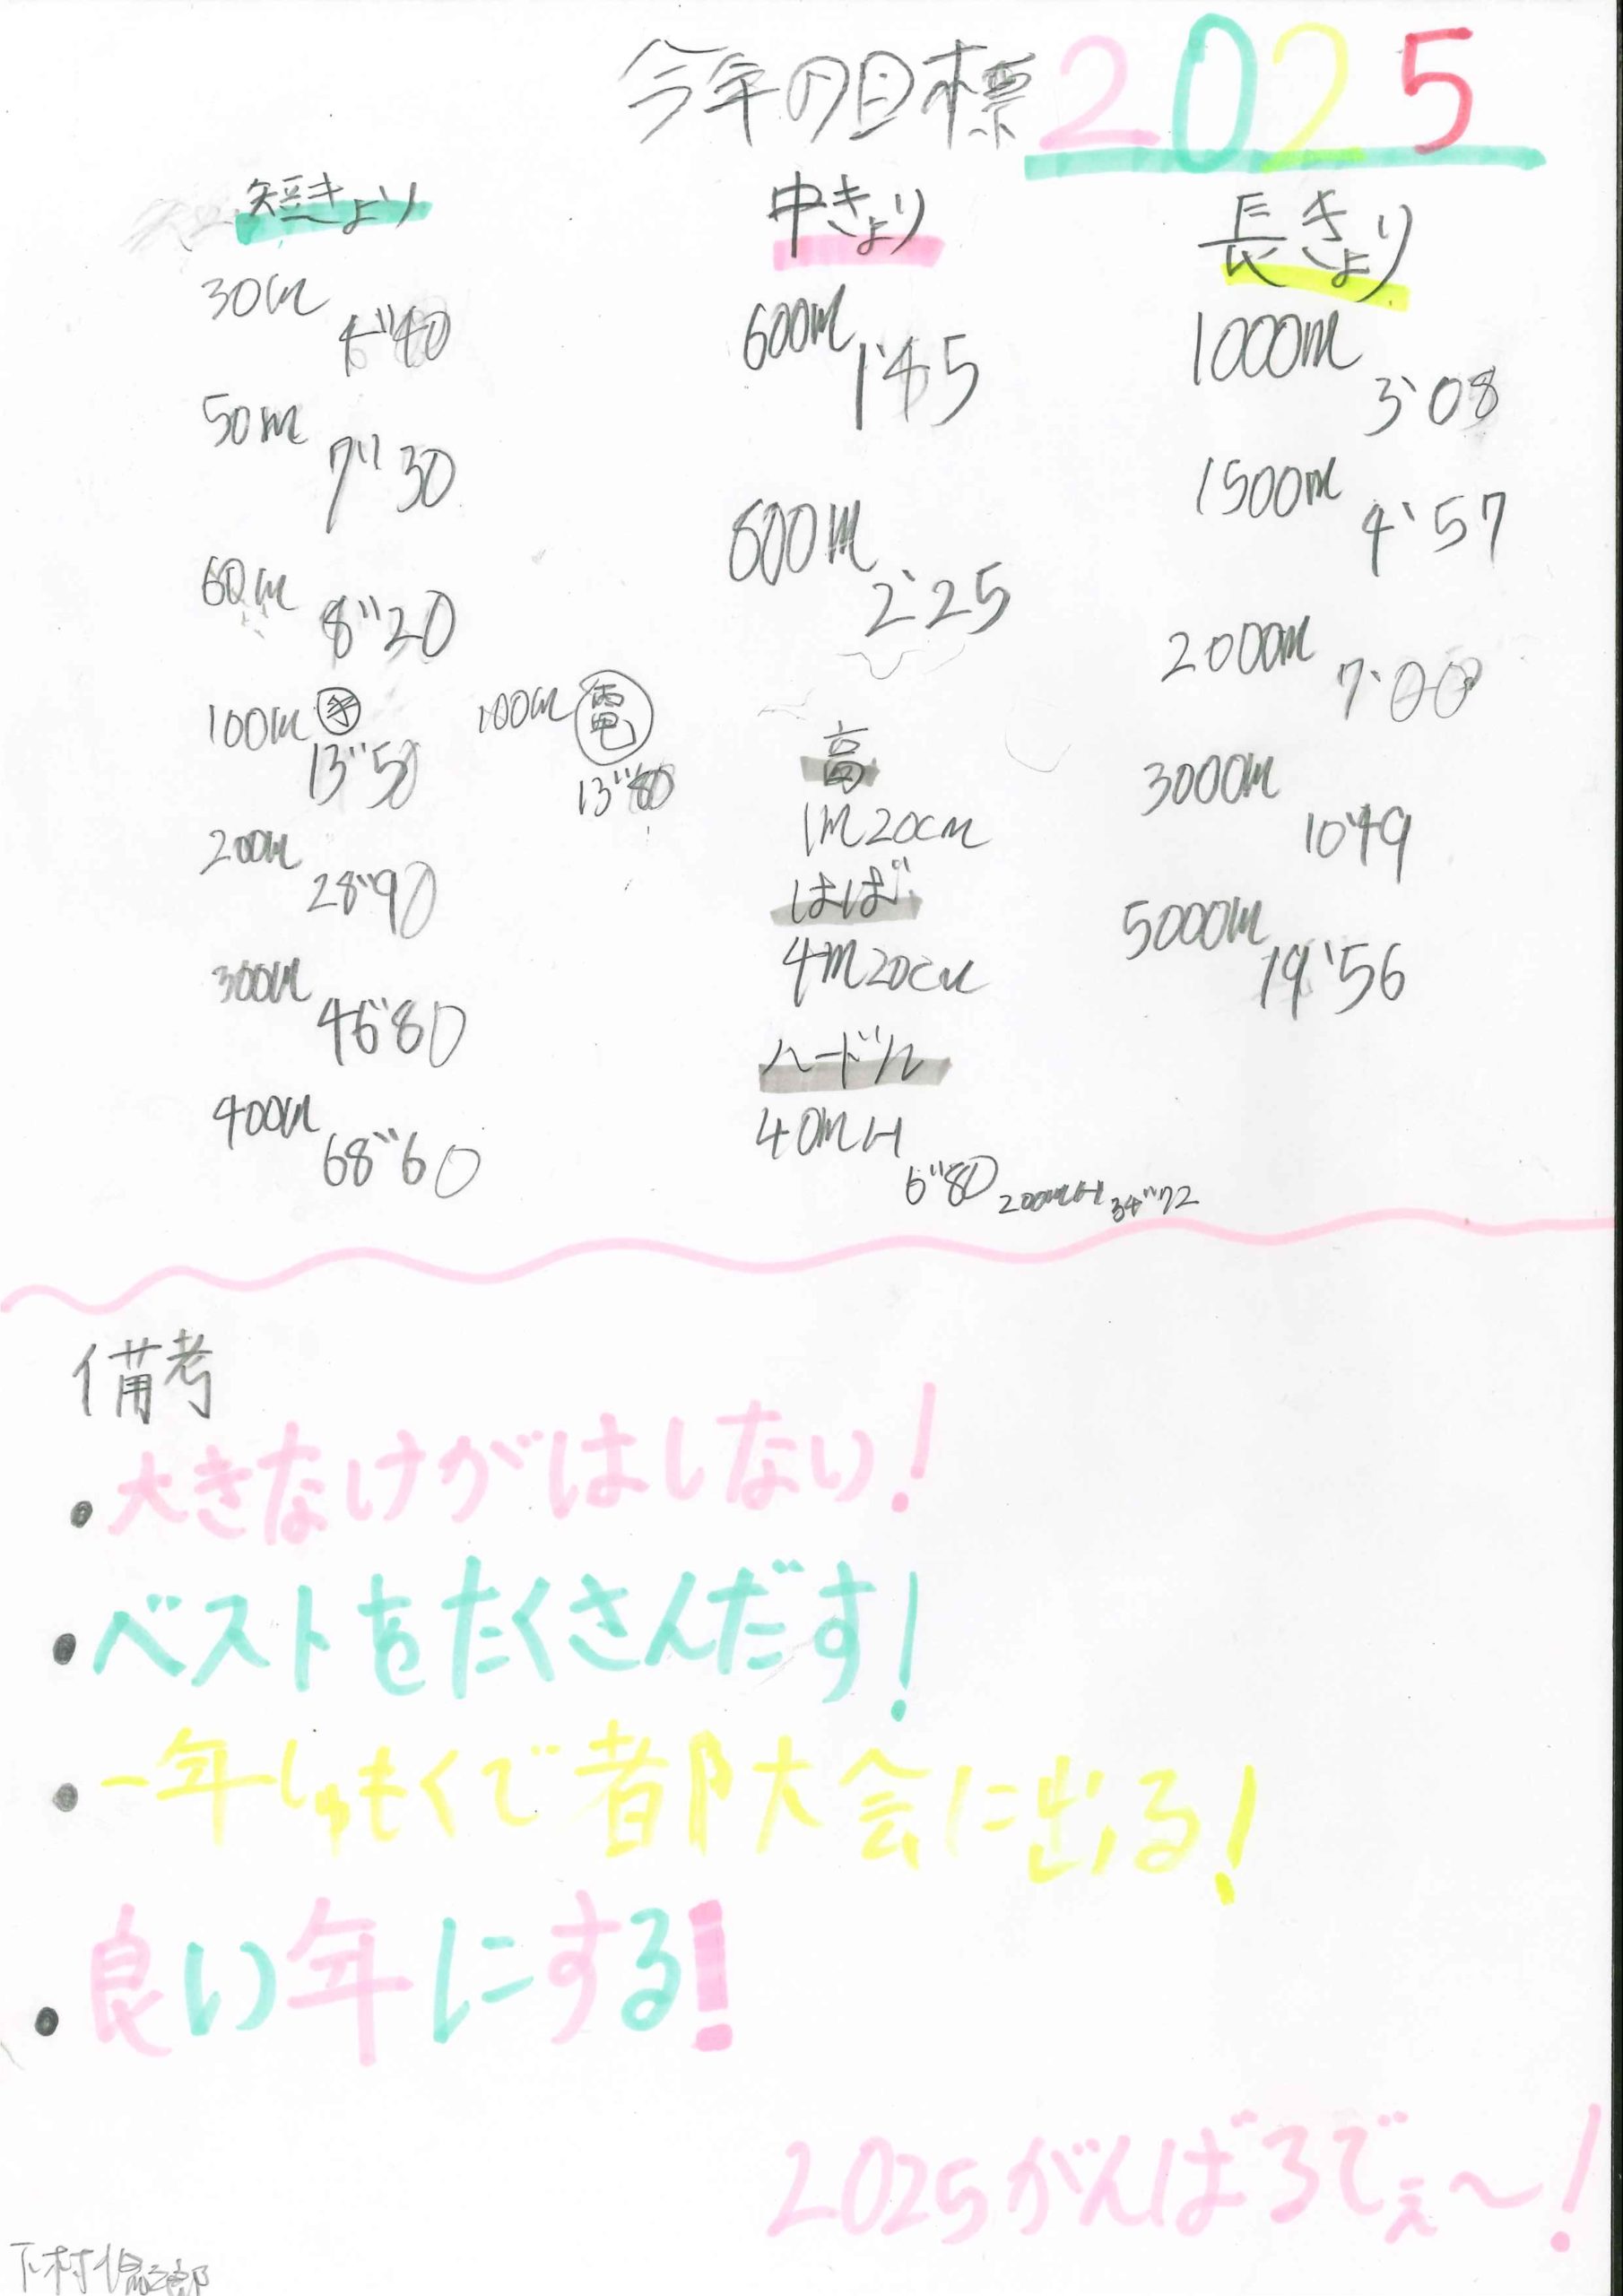 今年の目標2025
短きょり
30m 4"40
50m 7"30
60m 8"20
100m 手 13"50
100m 電 13"80
200m 28"90
300m 46"80
400m 68"60
中きょり
600m 1'45
800m 2'25
高
1m20cm
はば
4m20cm
ハードル
40mH 6"80
200mH 34"72
長きょり
1000m 3'08
1500m 4'57
2000m 7'00
3000m 10'49
5000m 19'56
備考
・大きなけがはしない!
・ベストをたくさんだす!
・一年しゅもくで都大会に出る!
・良い年にする!
2025がんばろでぇ〜!
下村